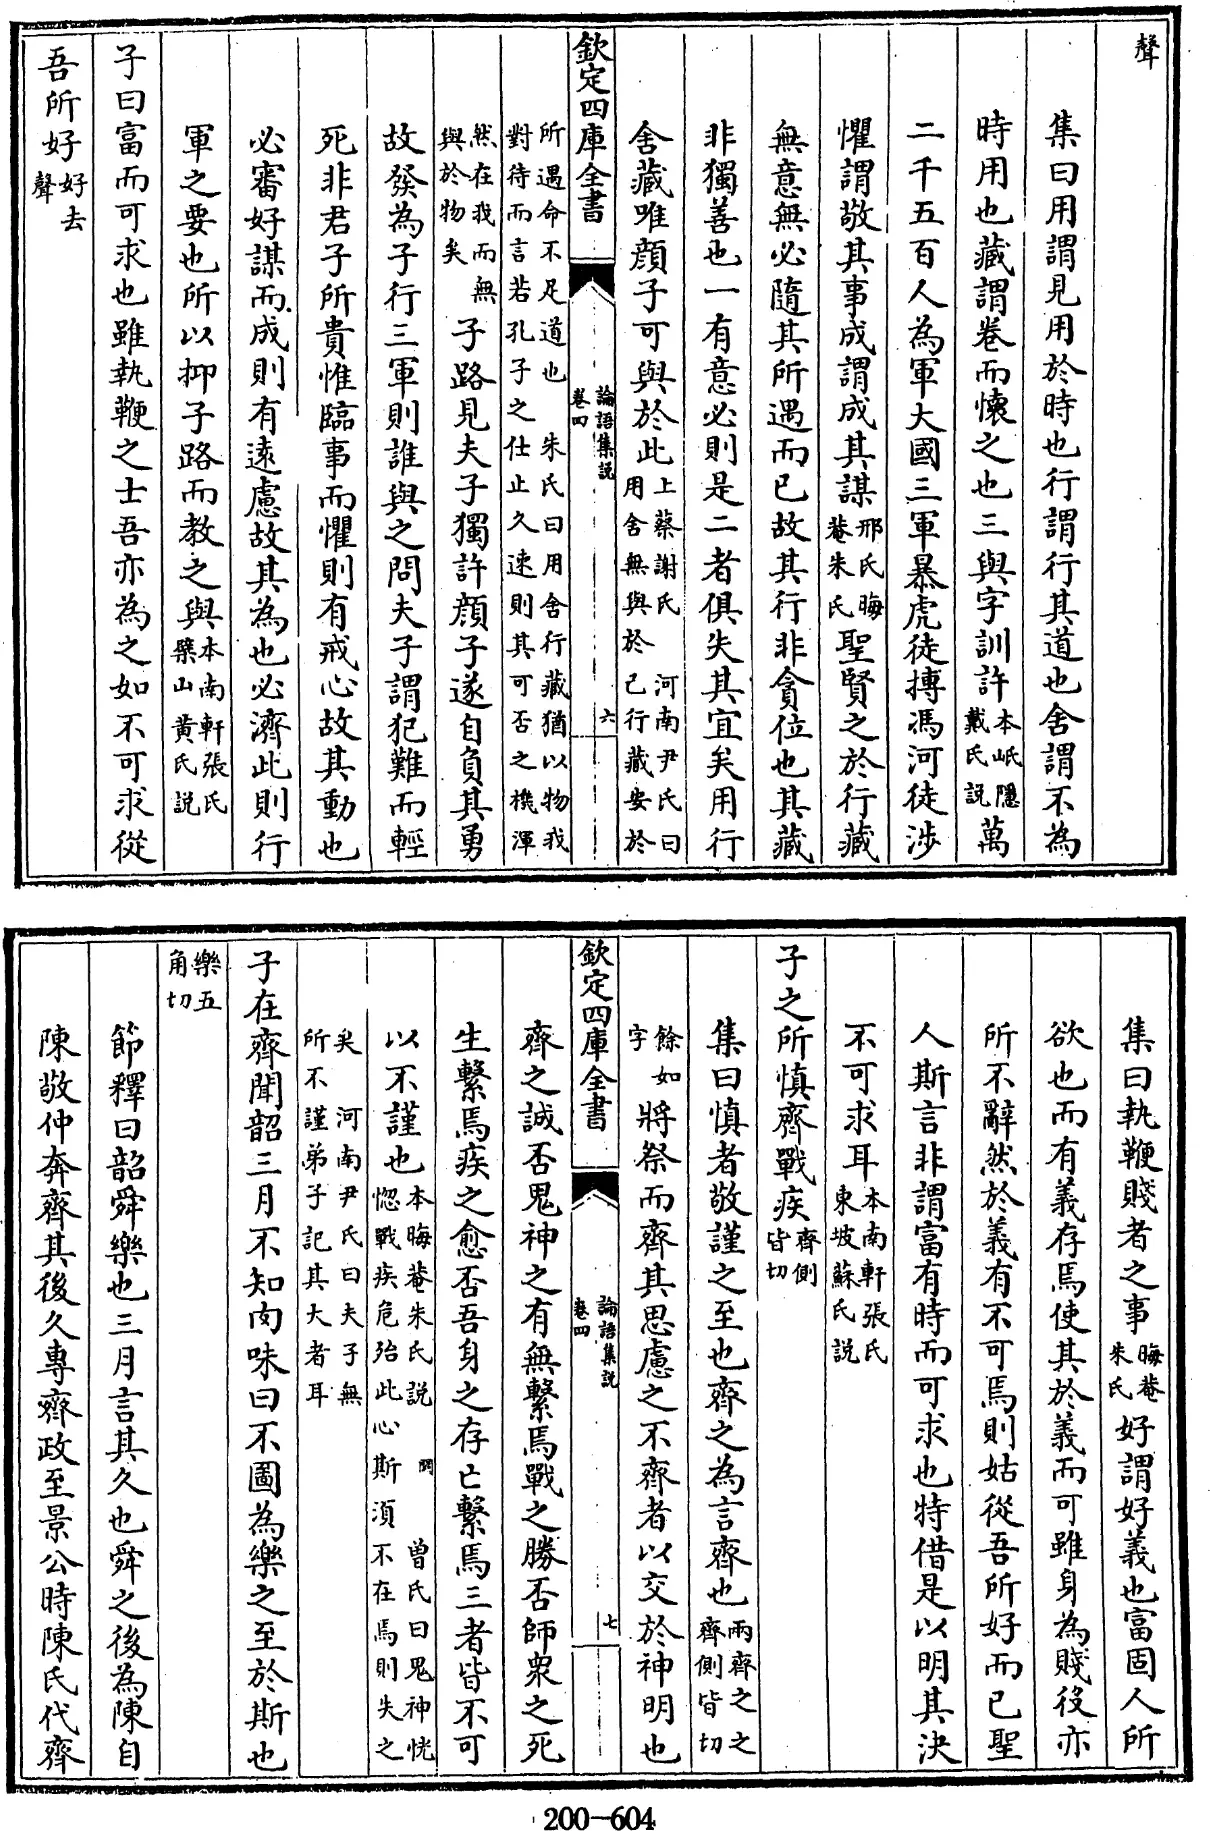 聲
集曰用謂見用於時也行謂行其道也舍謂不為
時用也藏謂卷而懷之也三與字訓許本岷隱戴氏説萬
二千五百人為軍大國三軍暴虎徒搏馮河徒涉
懼謂敬其事成謂成其謀邢氏晦菴朱氏聖賢之於行藏
無意無必隨其所遇而已故其行非貪位也其藏
非獨善也一有意必則是二者俱失其宜矣用行
舍藏唯顔子可與於此上蔡謝氏 河南尹氏曰用舍無與於己行藏安於
欽定四庫全書 論語集説 卷四 六
所遇命不足道也 朱氏曰用舍行藏猶以物我對待而言若孔子之仕止久速則其可否之機渾
然在我而無與於物矣子路見夫子獨許顔子遂自負其勇
故發為子行三軍則誰與之問夫子謂犯難而輕
死非君子所貴惟臨事而懼則有戒心故其動也
必審好謀而成則有遠慮故其為也必濟此則行
軍之要也所以抑子路而教之與本南軒張氏檗山黄氏説
子曰富而可求也雖執鞭之士吾亦為之如不可求從
吾所好好去聲
集曰執鞭賤者之事晦菴朱氏好謂好義也富固人所
欲也而有義存焉使其於義而可雖身為賤役亦
所不辭然於義有不可焉則姑從吾所好而已聖
人斯言非謂富有時而可求也特借是以明其決
不可求耳本南軒張氏東坡蘇氏説
子之所慎齊戰疾齊側皆切
集曰慎者敬謹之至也齊之為言齊也兩齊之之齊側皆切
餘如字將祭而齊其思慮之不齊者以交於神明也
欽定四庫全書 論語集説 卷四 七
齊之誠否鬼神之有無繫焉戰之勝否師衆之死
生繫焉疾之愈否吾身之存亡繫焉三者皆不可
以不謹也本晦菴朱氏説 闕 曽氏曰鬼神恍惚戰疾危殆此心斯須不在焉則失之
矣 河南尹氏曰夫子無所不謹弟子記其大者耳
子在齊聞韶三月不知肉味曰不圖為樂之至於斯也
樂五角切
節釋曰韶舜樂也三月言其久也舜之後為陳自
陳敬仲奔齊其後久專齊政至景公時陳氏代齊
200-604